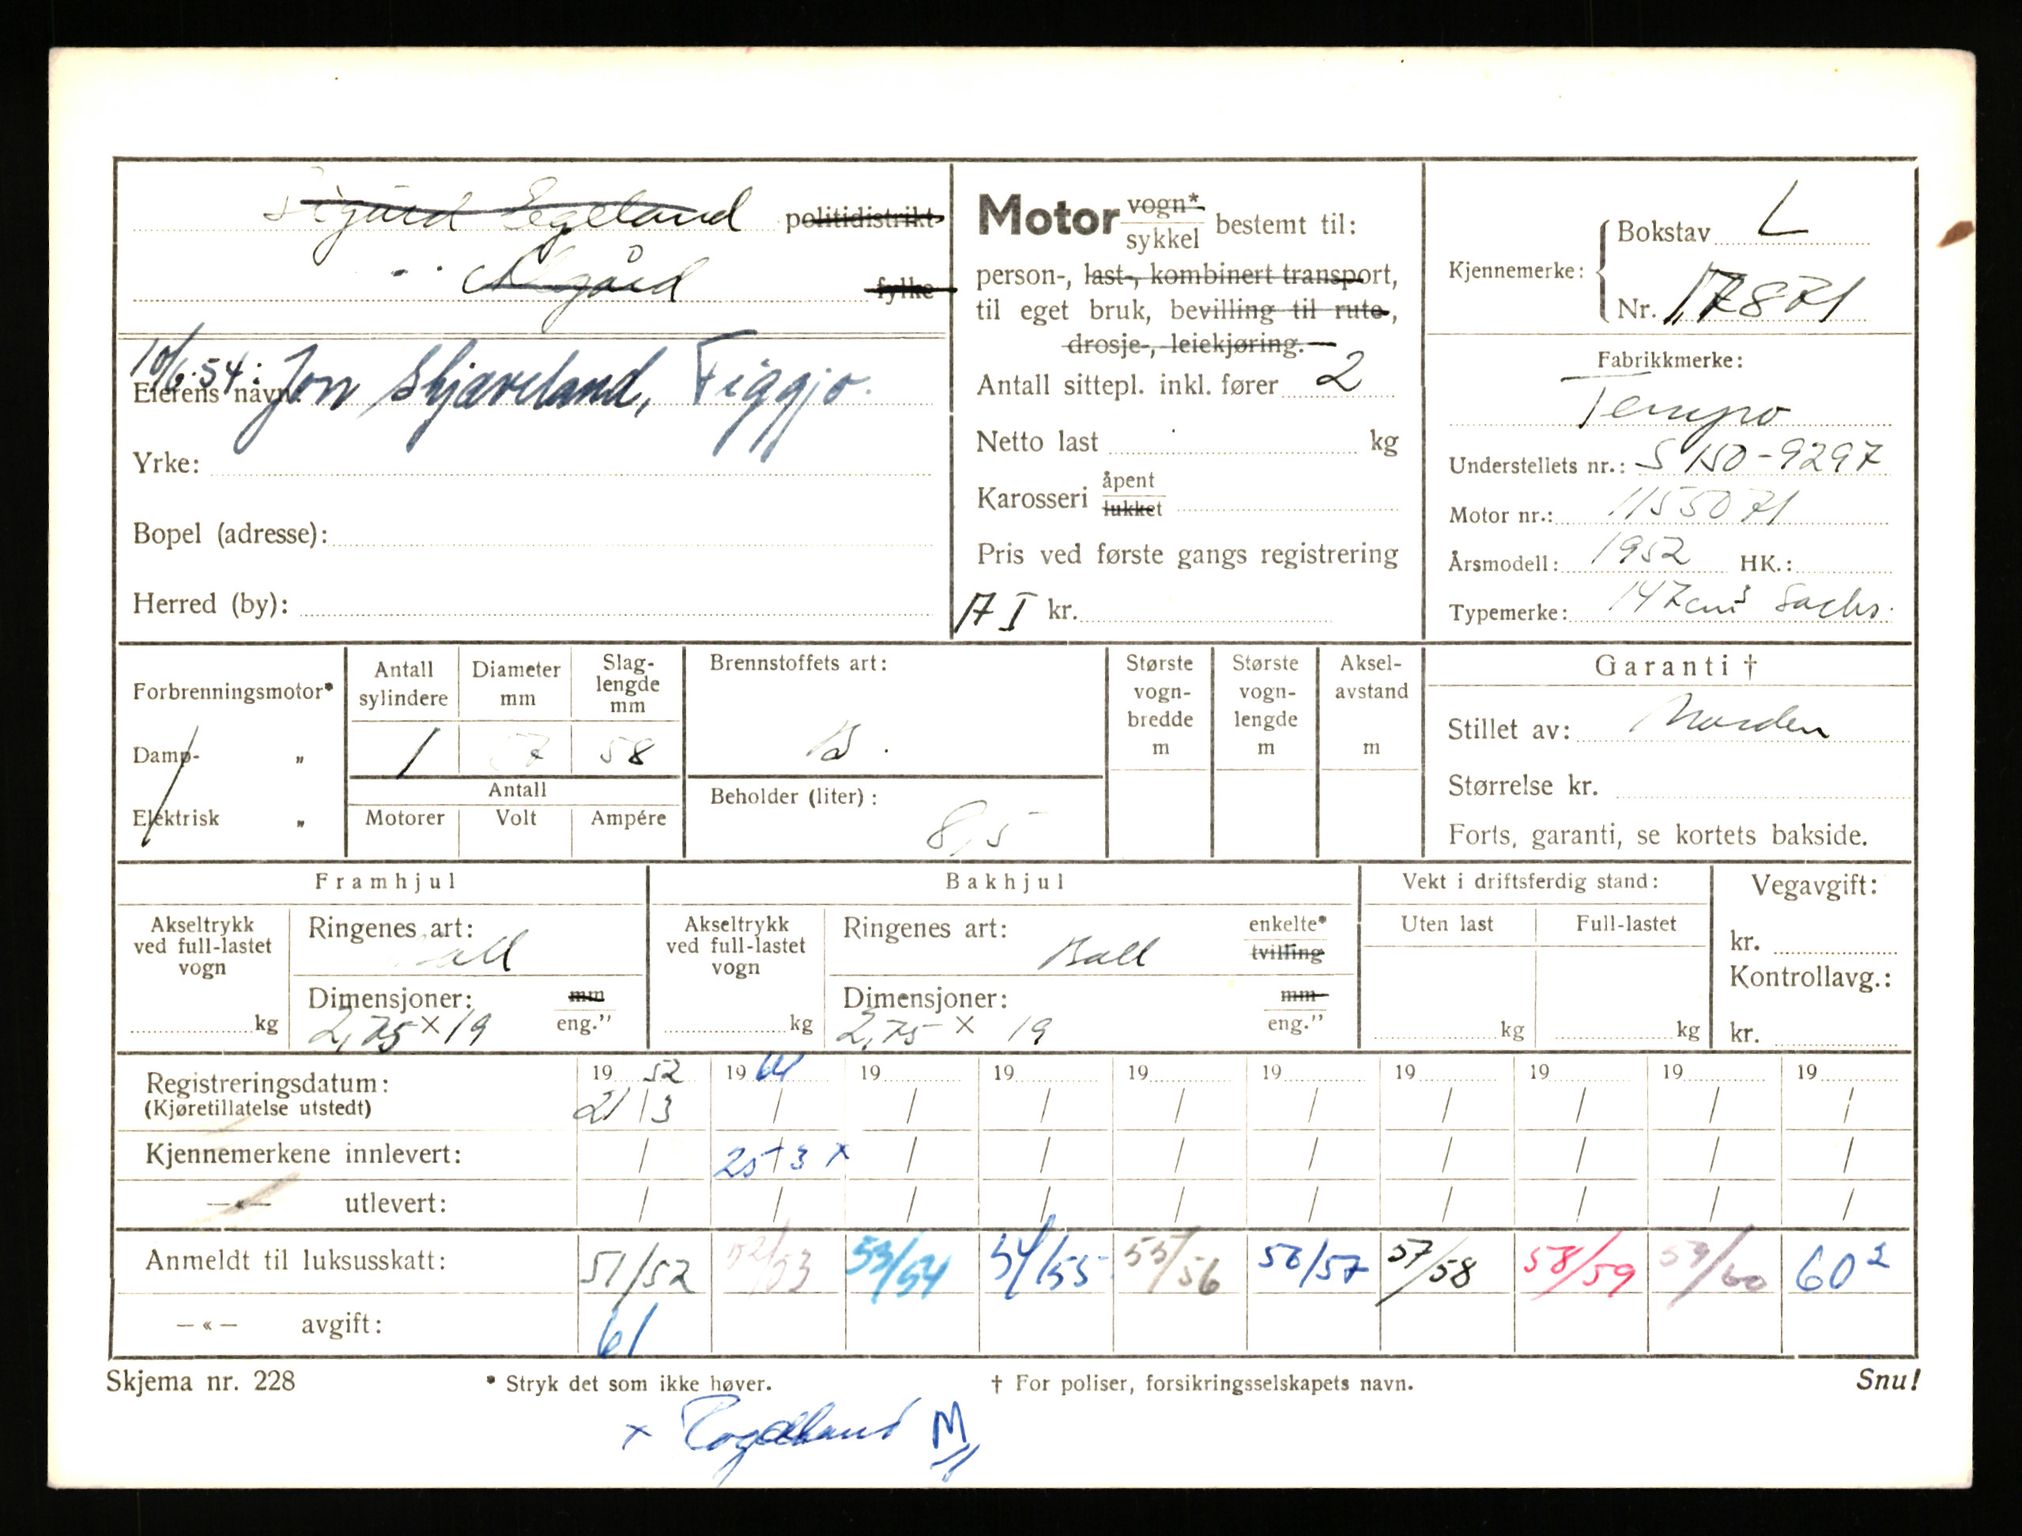 Sigurd Egeland politidistrikt
Ålgård fylke
10/6.54: Jon Skjæveland, Figgjo.
Eierens navn:
Yrke:
Bopel (adresse):
Herred (by):
Motor vogn* sykkel bestemt til:
person-, last-, kombinert transport,
til eget bruk, bevilling til rute,
drosje-, leiekjøring.
Antall sittepl. inkl. fører 2
Netto last kg
Karosseri åpent lukket
Pris ved første gangs registrering
kr.
Kjennemerke:
Bokstav L
Nr. 17871
Fabrikkmerke:
Tempo
Understellets nr.: S 150-9297
Motor nr.: 1155071
Årsmodell: 1952 HK.:
Typemerke: 147 cm³ Sachs.
Forbrenningsmotor*
Damp- „
Elektrisk „
Antall sylindere
Diameter mm
Slag-lengde mm
1 57 58
Antall
Motorer Volt Ampére
Brennstoffets art:
B.
Beholder (liter):
8,5
Største vogn-bredde m
Største vogn-lengde m
Aksel-avstand m
Garanti †
Stillet av: Norden
Størrelse kr.
Forts, garanti, se kortets bakside.
Framhjul
Akseltrykk ved full-lastet vogn
kg
Ringenes art:
Ball
Dimensjoner: mm
2,75 x 19 eng.”
Bakhjul
Akseltrykk ved full-lastet vogn
kg
Ringenes art: enkelte*
Ball tvilling
Dimensjoner: mm
2,75 x 19 eng.”
Vekt i driftsferdig stand:
Uten last Full-lastet
kg kg
Vegavgift:
kr.
Kontrollavg.:
kr.
Registreringsdatum: 19 52 19 61 19 19 19 19 19 19 19 19
(Kjøretillatelse utstedt) 21/3 / / / / / / / / /
Kjennemerkene innlevert: / 25/3 x / / / / / / / /
—«— utlevert: / / / / / / / / / /
Anmeldt til luksusskatt: 51/52 52/53 53/54 54/55 55/56 56/57 57/58 58/59 59/60 60²
—«— avgift: 61
Skjema nr. 228 * Stryk det som ikke høver. † For poliser, forsikringsselskapets navn. Snu!
x Rogaland M